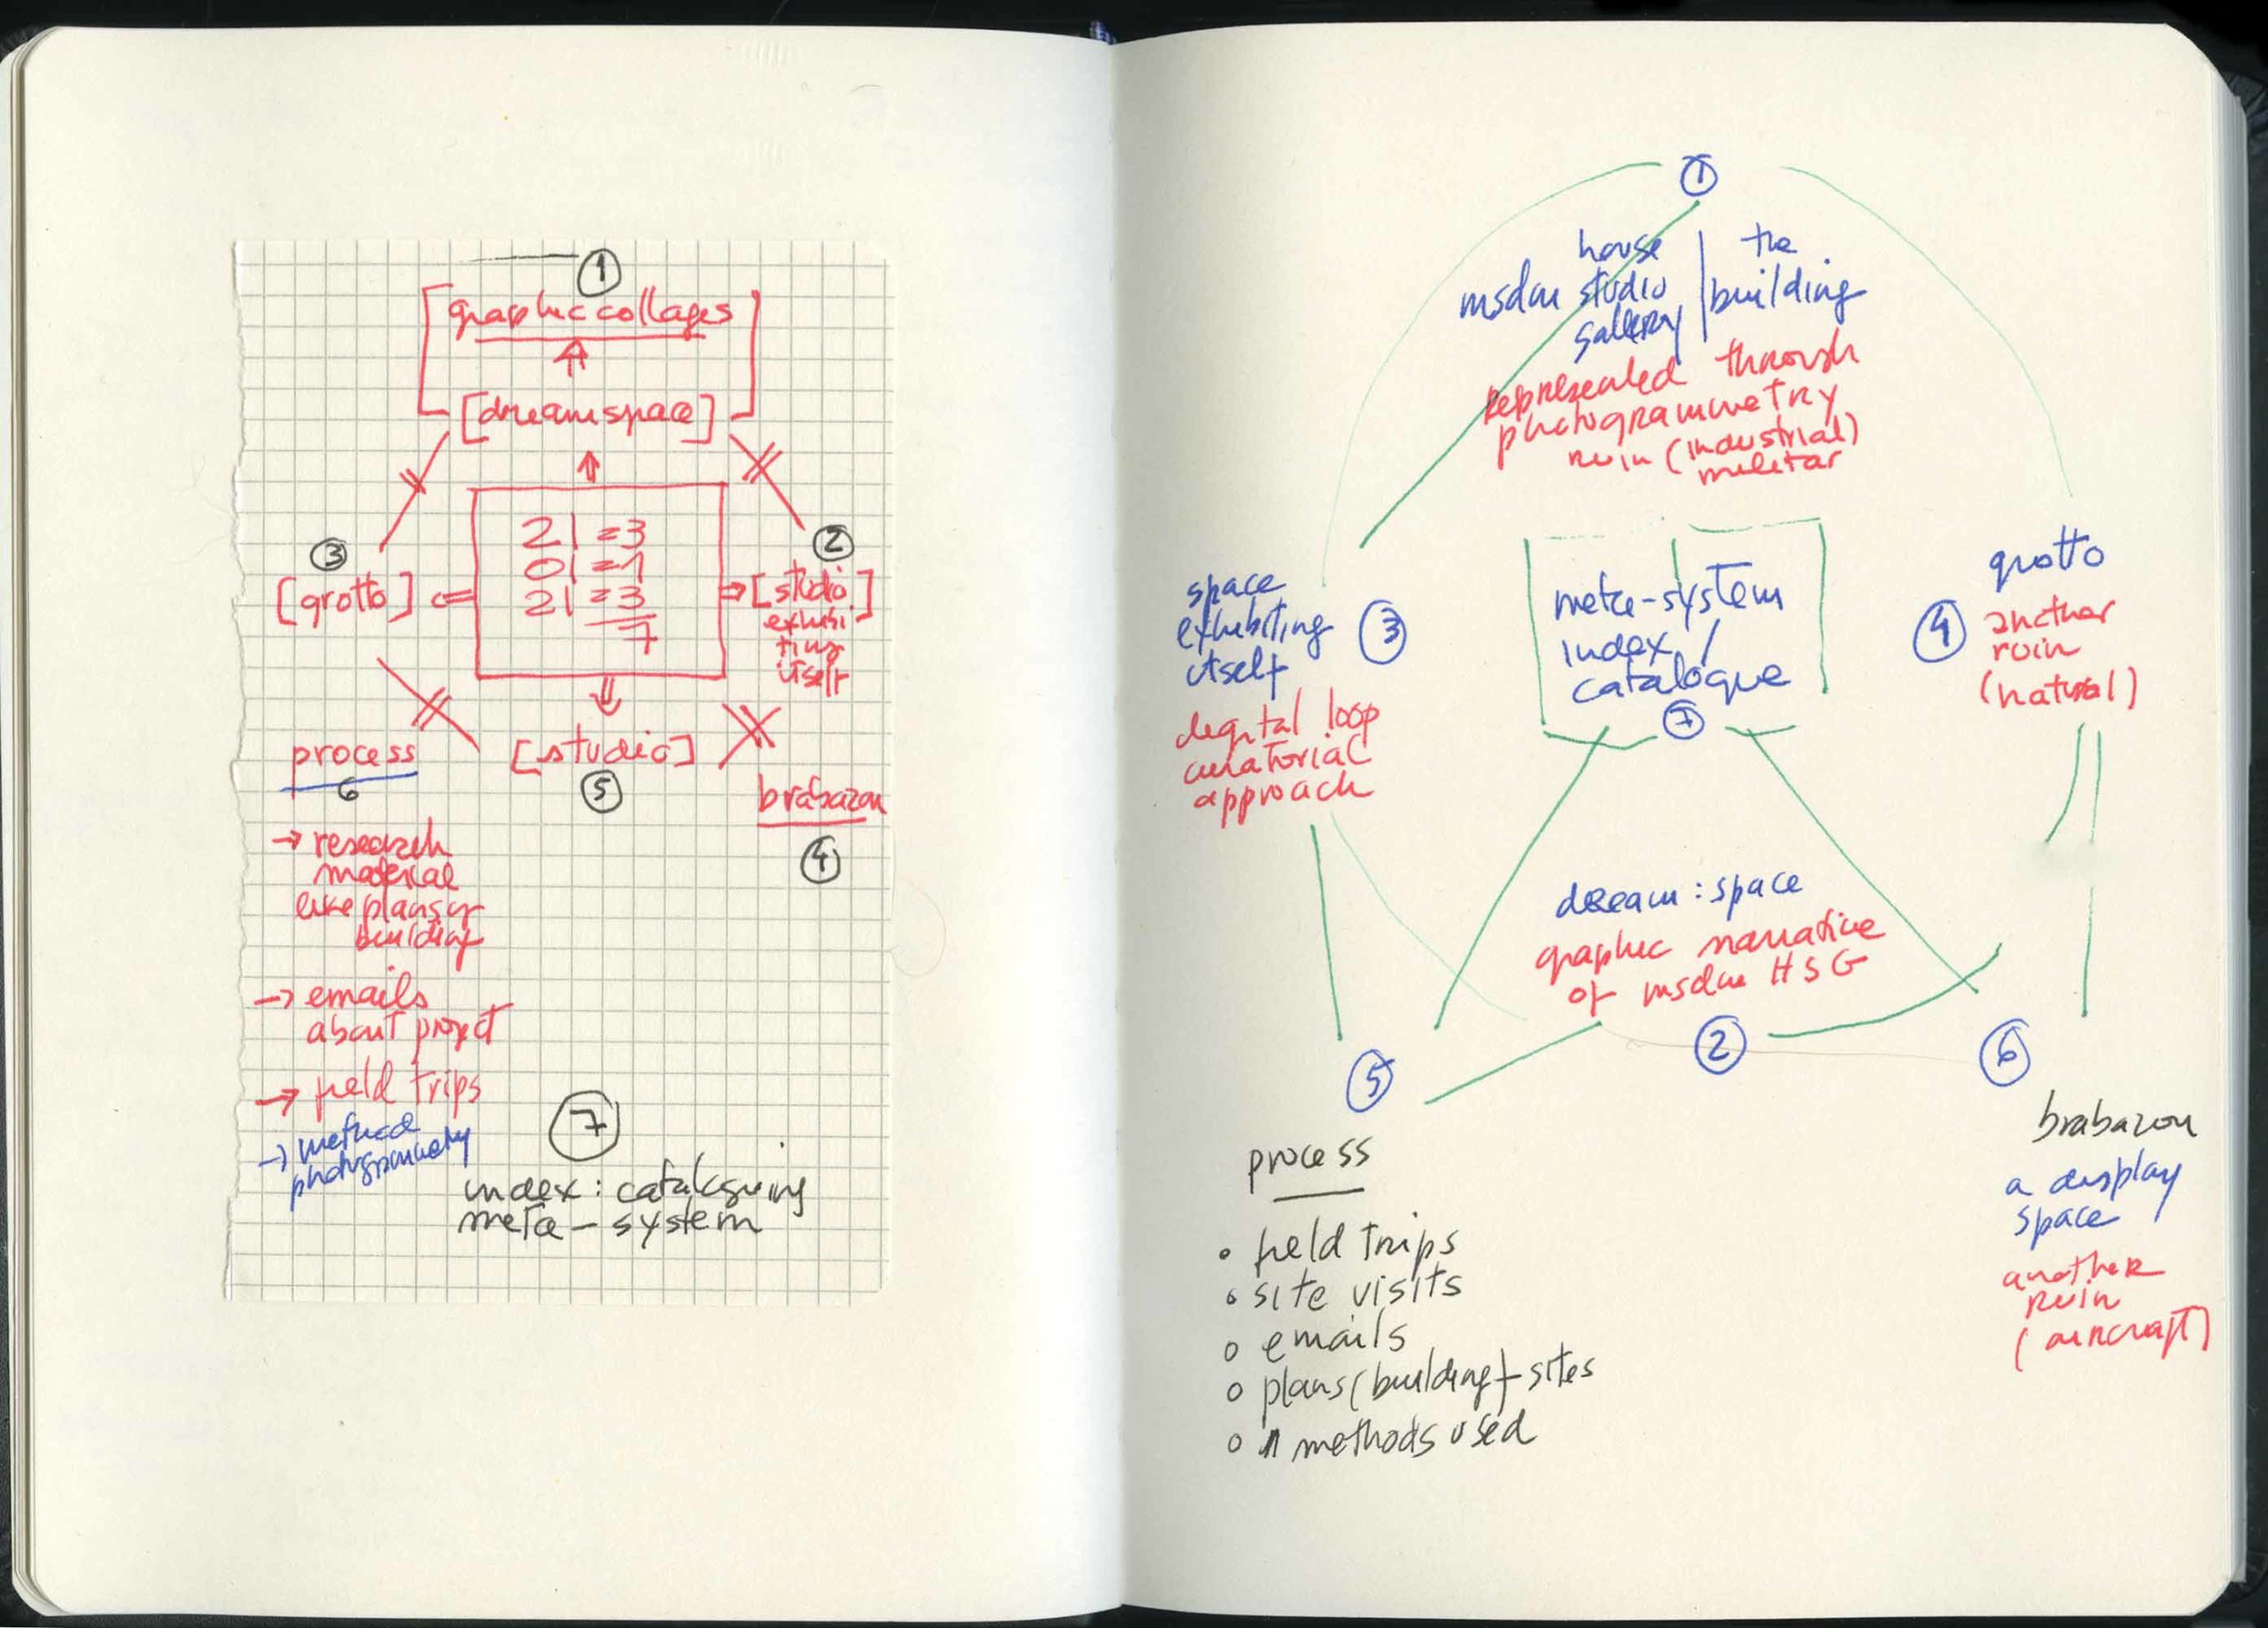 1
graphic collages
[dreamspace]
3
[grotto]
21 =3
01 =1
21 =3
7
2
[studio]
exhibi
ting
itself
process
6
[studio]
5
brabazon
4
→ research
material
like plans of
building
→ emails
about project
→ field trips
→ method
photogrammetry
7
index: cataloguing
meta-system
1
house
msdm studio
gallery
the
building
represented through
photogrammetry
ruin (industrial)
militar
space
exhibiting
itself
3
digital loop
curatorial
approach
meta-system
index /
catalogue
7
grotto
4
another
ruin
(natural)
dream: space
graphic narrative
of msdm HSG
2
5
6
process
• field trips
• site visits
o emails
o plans (building) + sites
o methods used
brabazon
a display
space
another
ruin
(aircraft)